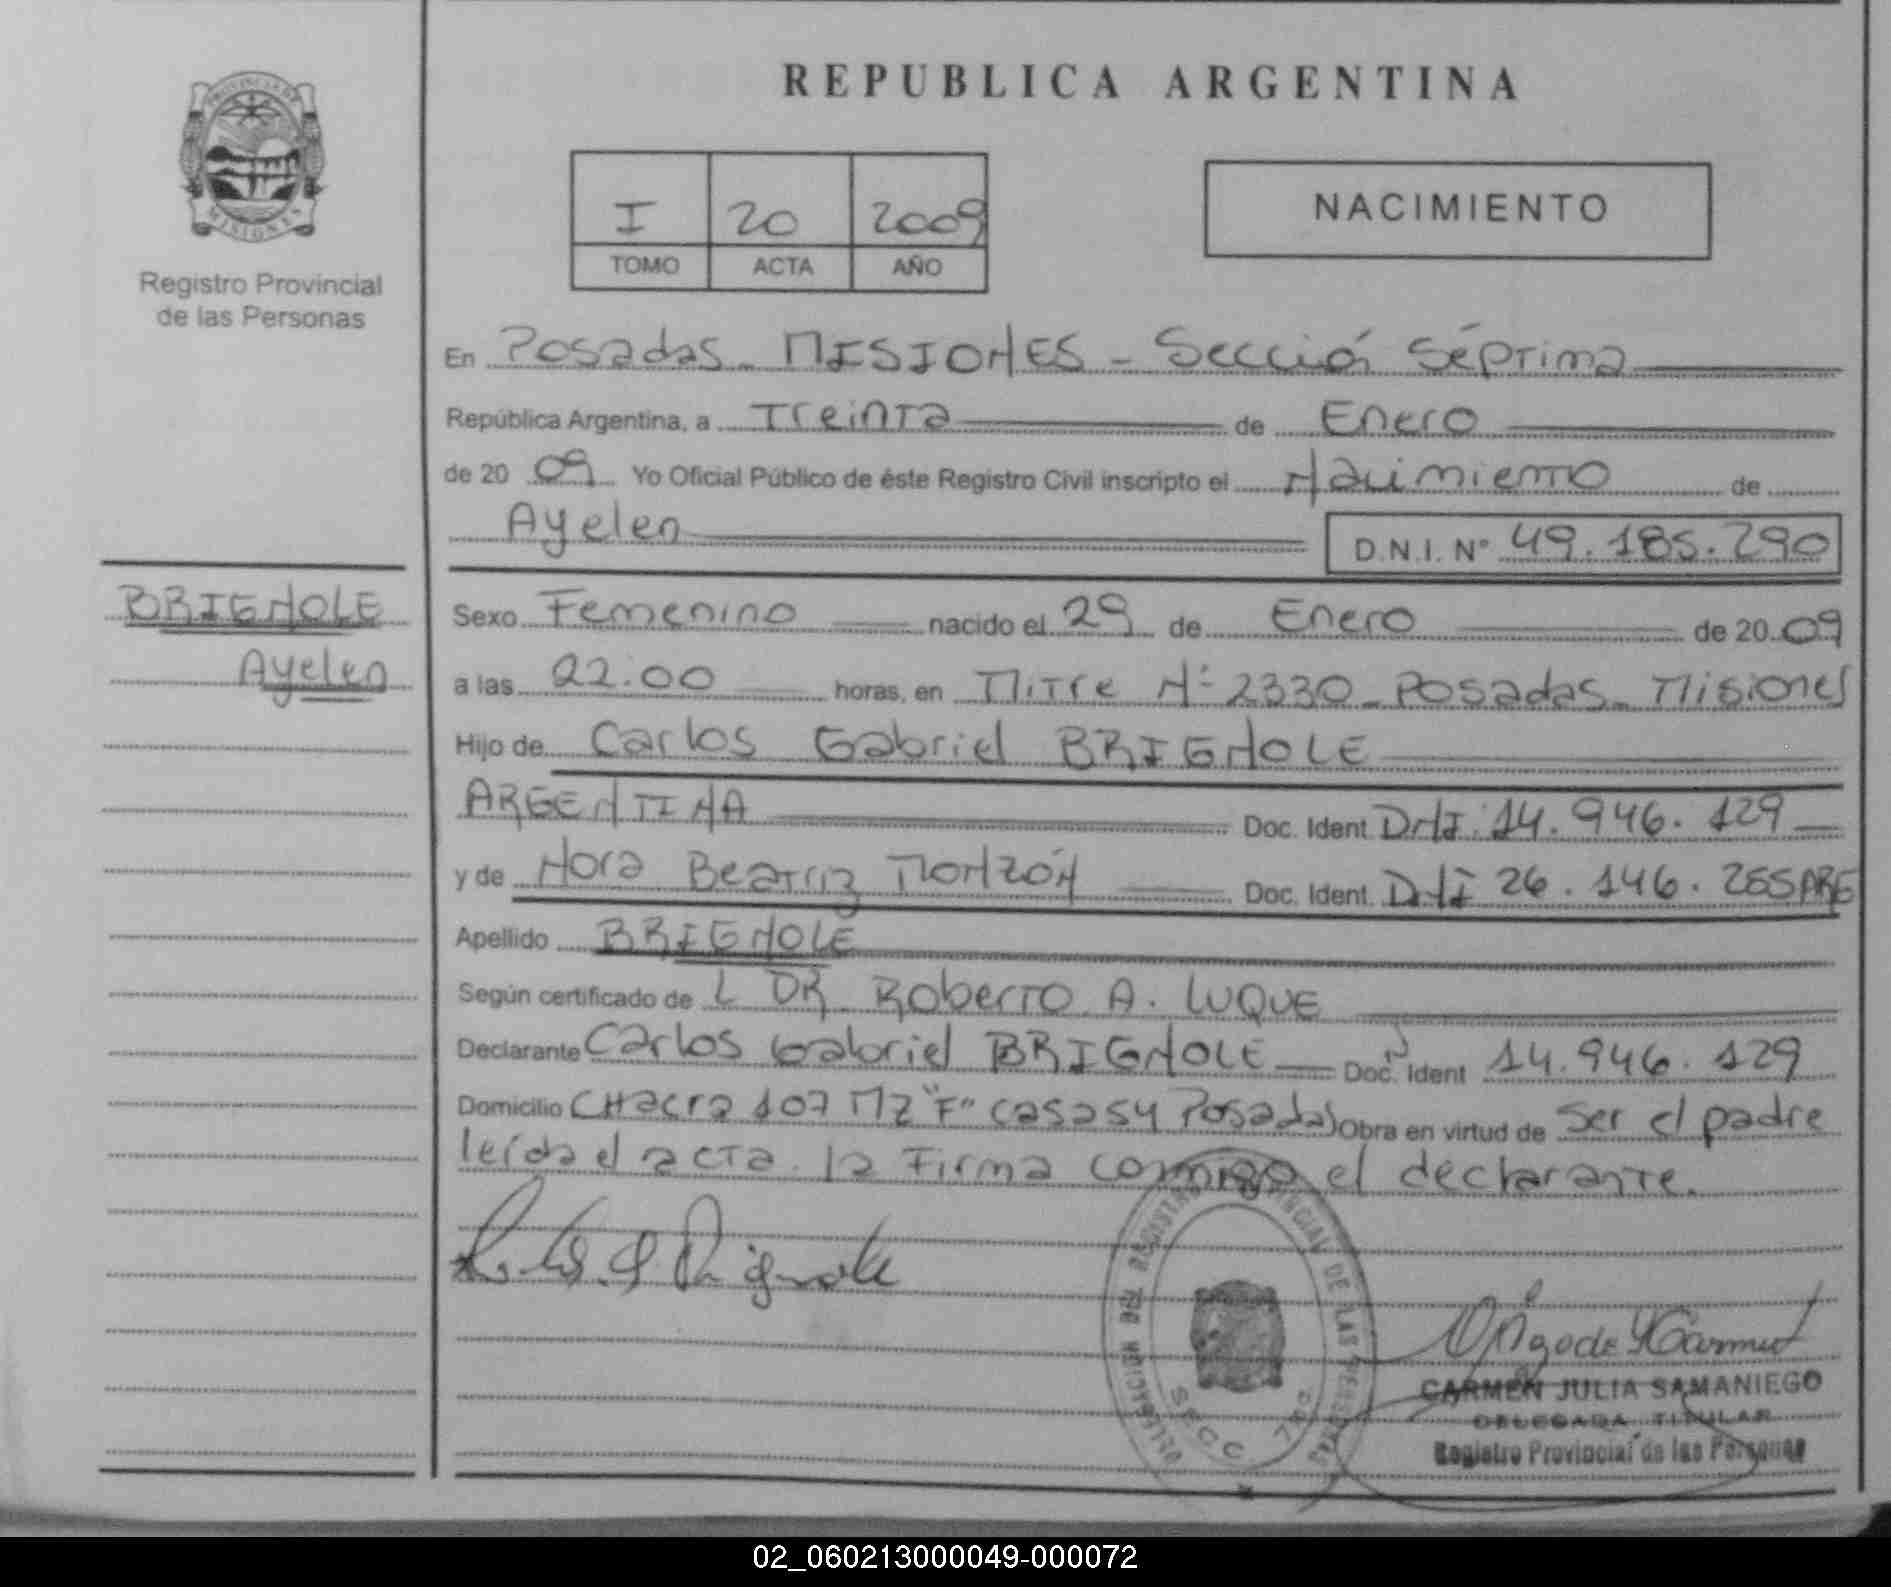 PROVINCIA DE
MISIONES
Registro Provincial
de las Personas
REPUBLICA ARGENTINA
I 20 2009
TOMO ACTA AÑO
NACIMIENTO
En Posadas - MISIONES - Sección Séptima
República Argentina, a Treinta de Enero
de 20 09 Yo Oficial Público de éste Registro Civil inscripto el Nacimiento de
Ayelen D.N.I. Nº 49.185.290
BRIGNOLE
Ayelen
Sexo Femenino nacido el 29 de Enero de 20 09
a las 22:00 horas, en Mitre Nº 2330 - Posadas - Misiones
Hijo de Carlos Gabriel BRIGNOLE
ARGENTINA Doc. Ident. DNI 14.946.129
y de Nora Beatriz MONZÓN Doc. Ident. DNI 26.146.255 ARG
Apellido BRIGNOLE
Según certificado de L DR Roberto A. LUQUE
Declarante Carlos Gabriel BRIGNOLE Doc. Ident 14.946.129
Domicilio CHacra 107 MZ "F" casa 54 Posadas Obra en virtud de Ser el padre
leída el acta la Firma conmigo el declarante.
DELEGACION DEL REGISTRO PROVINCIAL DE LAS PERSONAS
SECC. 7
CARMEN JULIA SAMANIEGO
DELEGADA TITULAR
Registro Provincial de las Personas
02_060213000049-000072